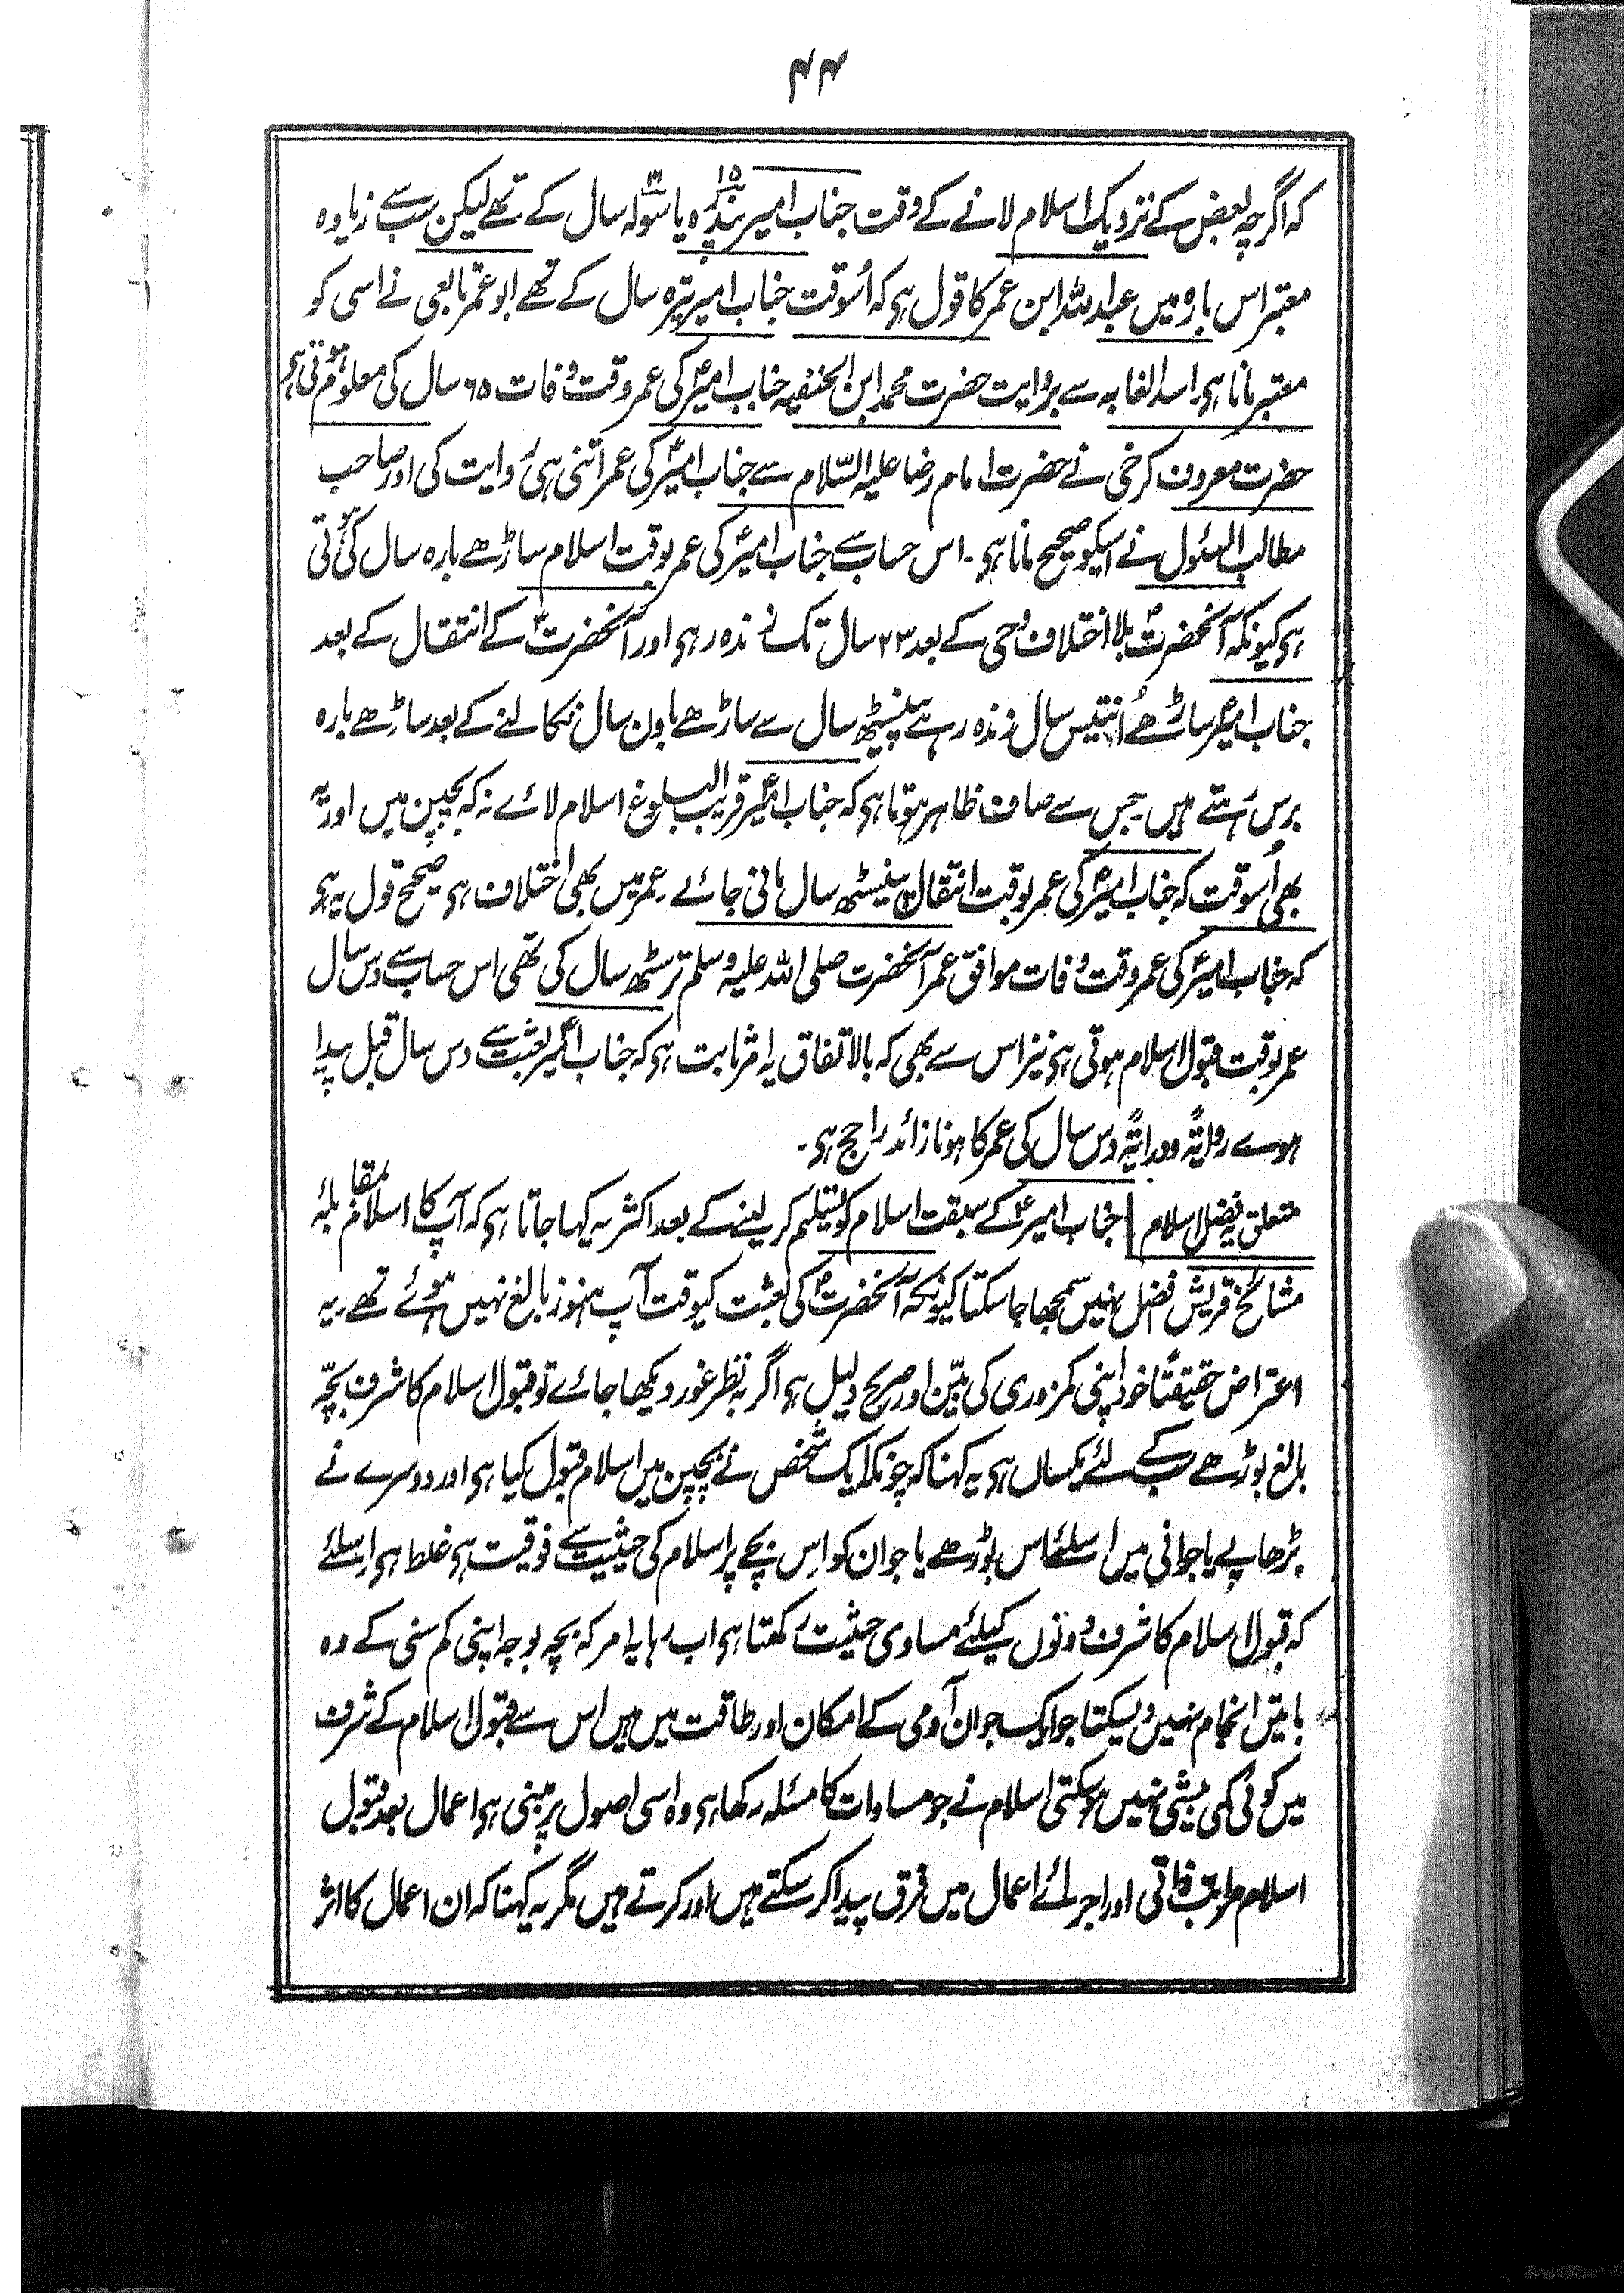 ۴۴
کہ اگرچہ بعض کے نزدیک اسلام لانے کے وقت جناب امیر پندرہ ۱۵ یا سولہ سال کے تھے لیکن سب سے زیادہ
معتبر اس بارہ میں عبداللہ ابن عمر کا قول ہی کہ اُسوقت جناب امیر تیرہ سال کے تھے ابو عمر تابعی نے اسی کو
معتبر مانا ہی۔ اسد الغابہ سے بروایت حضرت محمد ابن الحنفیہ جناب امیرؑ کی عمر وقت وفات ۶۵ سال کی معلوم ہوتی ہی
حضرت معروف کرخی نے حضرت امام رضا علیہ السّلام سے جناب امیرؑ کی عمر اتنی ہی روایت کی اور صاحب
مطالب السئول نے اسکو صحیح مانا ہی۔ اس حساب سے جناب امیرؑ کی عمر بوقت اسلام ساڑھے بارہ سال کی ہوتی
ہی کیونکہ آنحضرتؐ بلا اختلاف وحی کے بعد ۲۳ سال تک زندہ رہی اور آنحضرتؐ کے انتقال کے بعد
جناب امیرؑ ساڑھے اُنتیس سال زندہ رہے پینسٹھ سال سے ساڑھے باون سال نکالنے کے بعد ساڑھے بارہ
برس رہتے ہیں جس سے صاف ظاہر ہوتا ہی کہ جناب امیرؑ قریب البلوغ اسلام لائے نہ کہ بچپن میں اور یہ
بھی اُسوقت کہ جناب امیرؑ کی عمر بوقت انتقال پینسٹھ سال مانی جائے۔ عمر میں بھی اختلاف ہی صحیح قول یہ ہی
کہ جناب امیرؑ کی عمر وقت وفات موافق عمر آنحضرت صلی اللہ علیہ وسلم ترسٹھ سال کی تھی اس حساب سے دس سال
عمر بوقت قبول اسلام ہوتی ہی نیز اس سے بھی کہ بالاتفاق یہ امر ثابت ہی کہ جناب امیرؑ بعثت سے دس سال قبل پیدا
ہوے روایتًہ و درایتًہ دس سال کی عمر کا ہونا زائد راجح ہی۔
متعلق بفضل اسلام | جناب امیرؑ کے سبقت اسلام کو تسلیم کر لینے کے بعد اکثر یہ کہا جاتا ہی کہ آپ کا اسلام بمقابلہ
مشائخ قریش افضل نہیں سمجھا جا سکتا کیونکہ آنحضرتؐ کی بعثت کیوقت آپ ہنوز بالغ نہیں ہوئے تھے۔ یہ
اعتراض حقیقتًا خود اپنی کمزوری کی بیّن اور صریح دلیل ہی اگر بہ نظر غور دیکھا جائے تو قبول اسلام کا شرف بچّہ
بالغ بوڑھے سب کے لئے یکساں ہی یہ کہنا کہ چونکہ ایک شخص نے بچپن میں اسلام قبول کیا ہی اور دوسرے نے
بڑھاپے یا جوانی میں اسلئے اس بوڑھے یا جوان کو اس بچے پر اسلام کی حیثیت سے فوقیت ہی غلط ہی اسلئے
کہ قبول اسلام کا شرف دونوں کیلئے مساوی حیثیت رکھتا ہی اب رہا یہ امر کہ بچہ بوجہ اپنی کم سنی کے وہ
باتیں انجام نہیں دیسکتا جو ایک جوان آدمی کے امکان اور طاقت میں ہیں اس سے قبول اسلام کے شرف
میں کوئی کمی بیشی نہیں ہو سکتی اسلام نے جو مساوات کا مسئلہ رکھا ہی وہ اسی اصول پر مبنی ہی اعمال بعد قبول
اسلام مراتب ذاتی اور اجرائے اعمال میں فرق پیدا کر سکتے ہیں اور کرتے ہیں مگر یہ کہنا کہ ان اعمال کا اثر